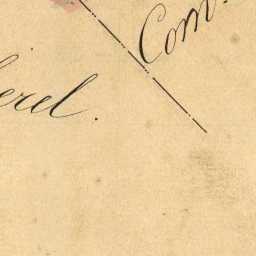 Com.
erel.